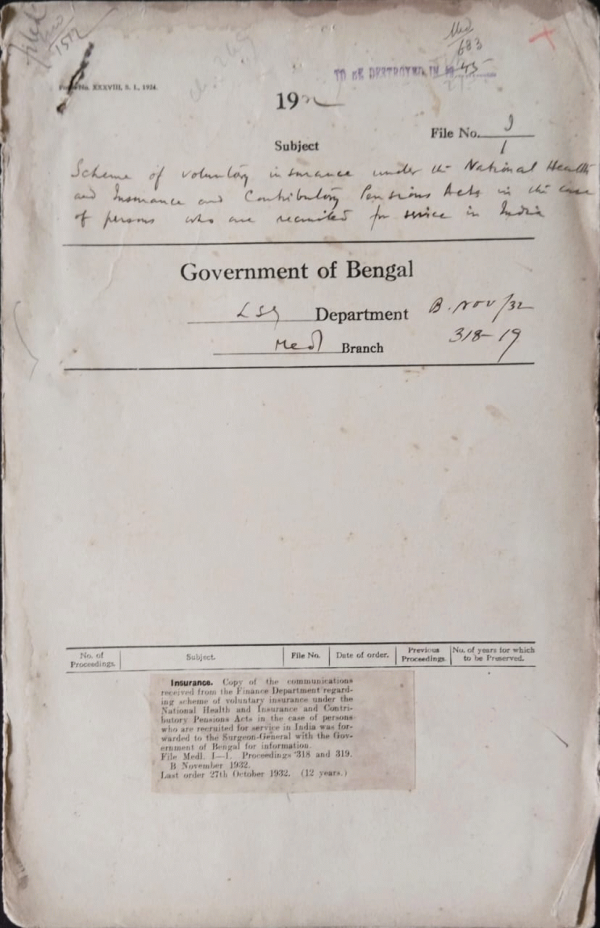 Med
683
45
TO BE DESTROYED IN
1512
No. XXXVIII, S. I., 1924.
19
File No. I
1
Subject
Scheme of voluntary insurance under the National Health
and Insurance and Contributory Pensions Acts in the case
of persons who are recruited for service in India
Government of Bengal
LSG Department B. Nov/32
Medl Branch 318-19
No. of Proceedings. Subject. File No. Date of order. Previous Proceedings. No. of years for which to be Preserved.
Insurance. Copy of the communications
received from the Finance Department regard-
ing scheme of voluntary insurance under the
National Health and Insurance and Contri-
butory Pensions Acts in the case of persons
who are recruited for service in India was for-
warded to the Surgeon-General with the Gov-
ernment of Bengal for information.
File Medl. 1—1. Proceedings 318 and 319.
B November 1932.
Last order 27th October 1932. (12 years.)